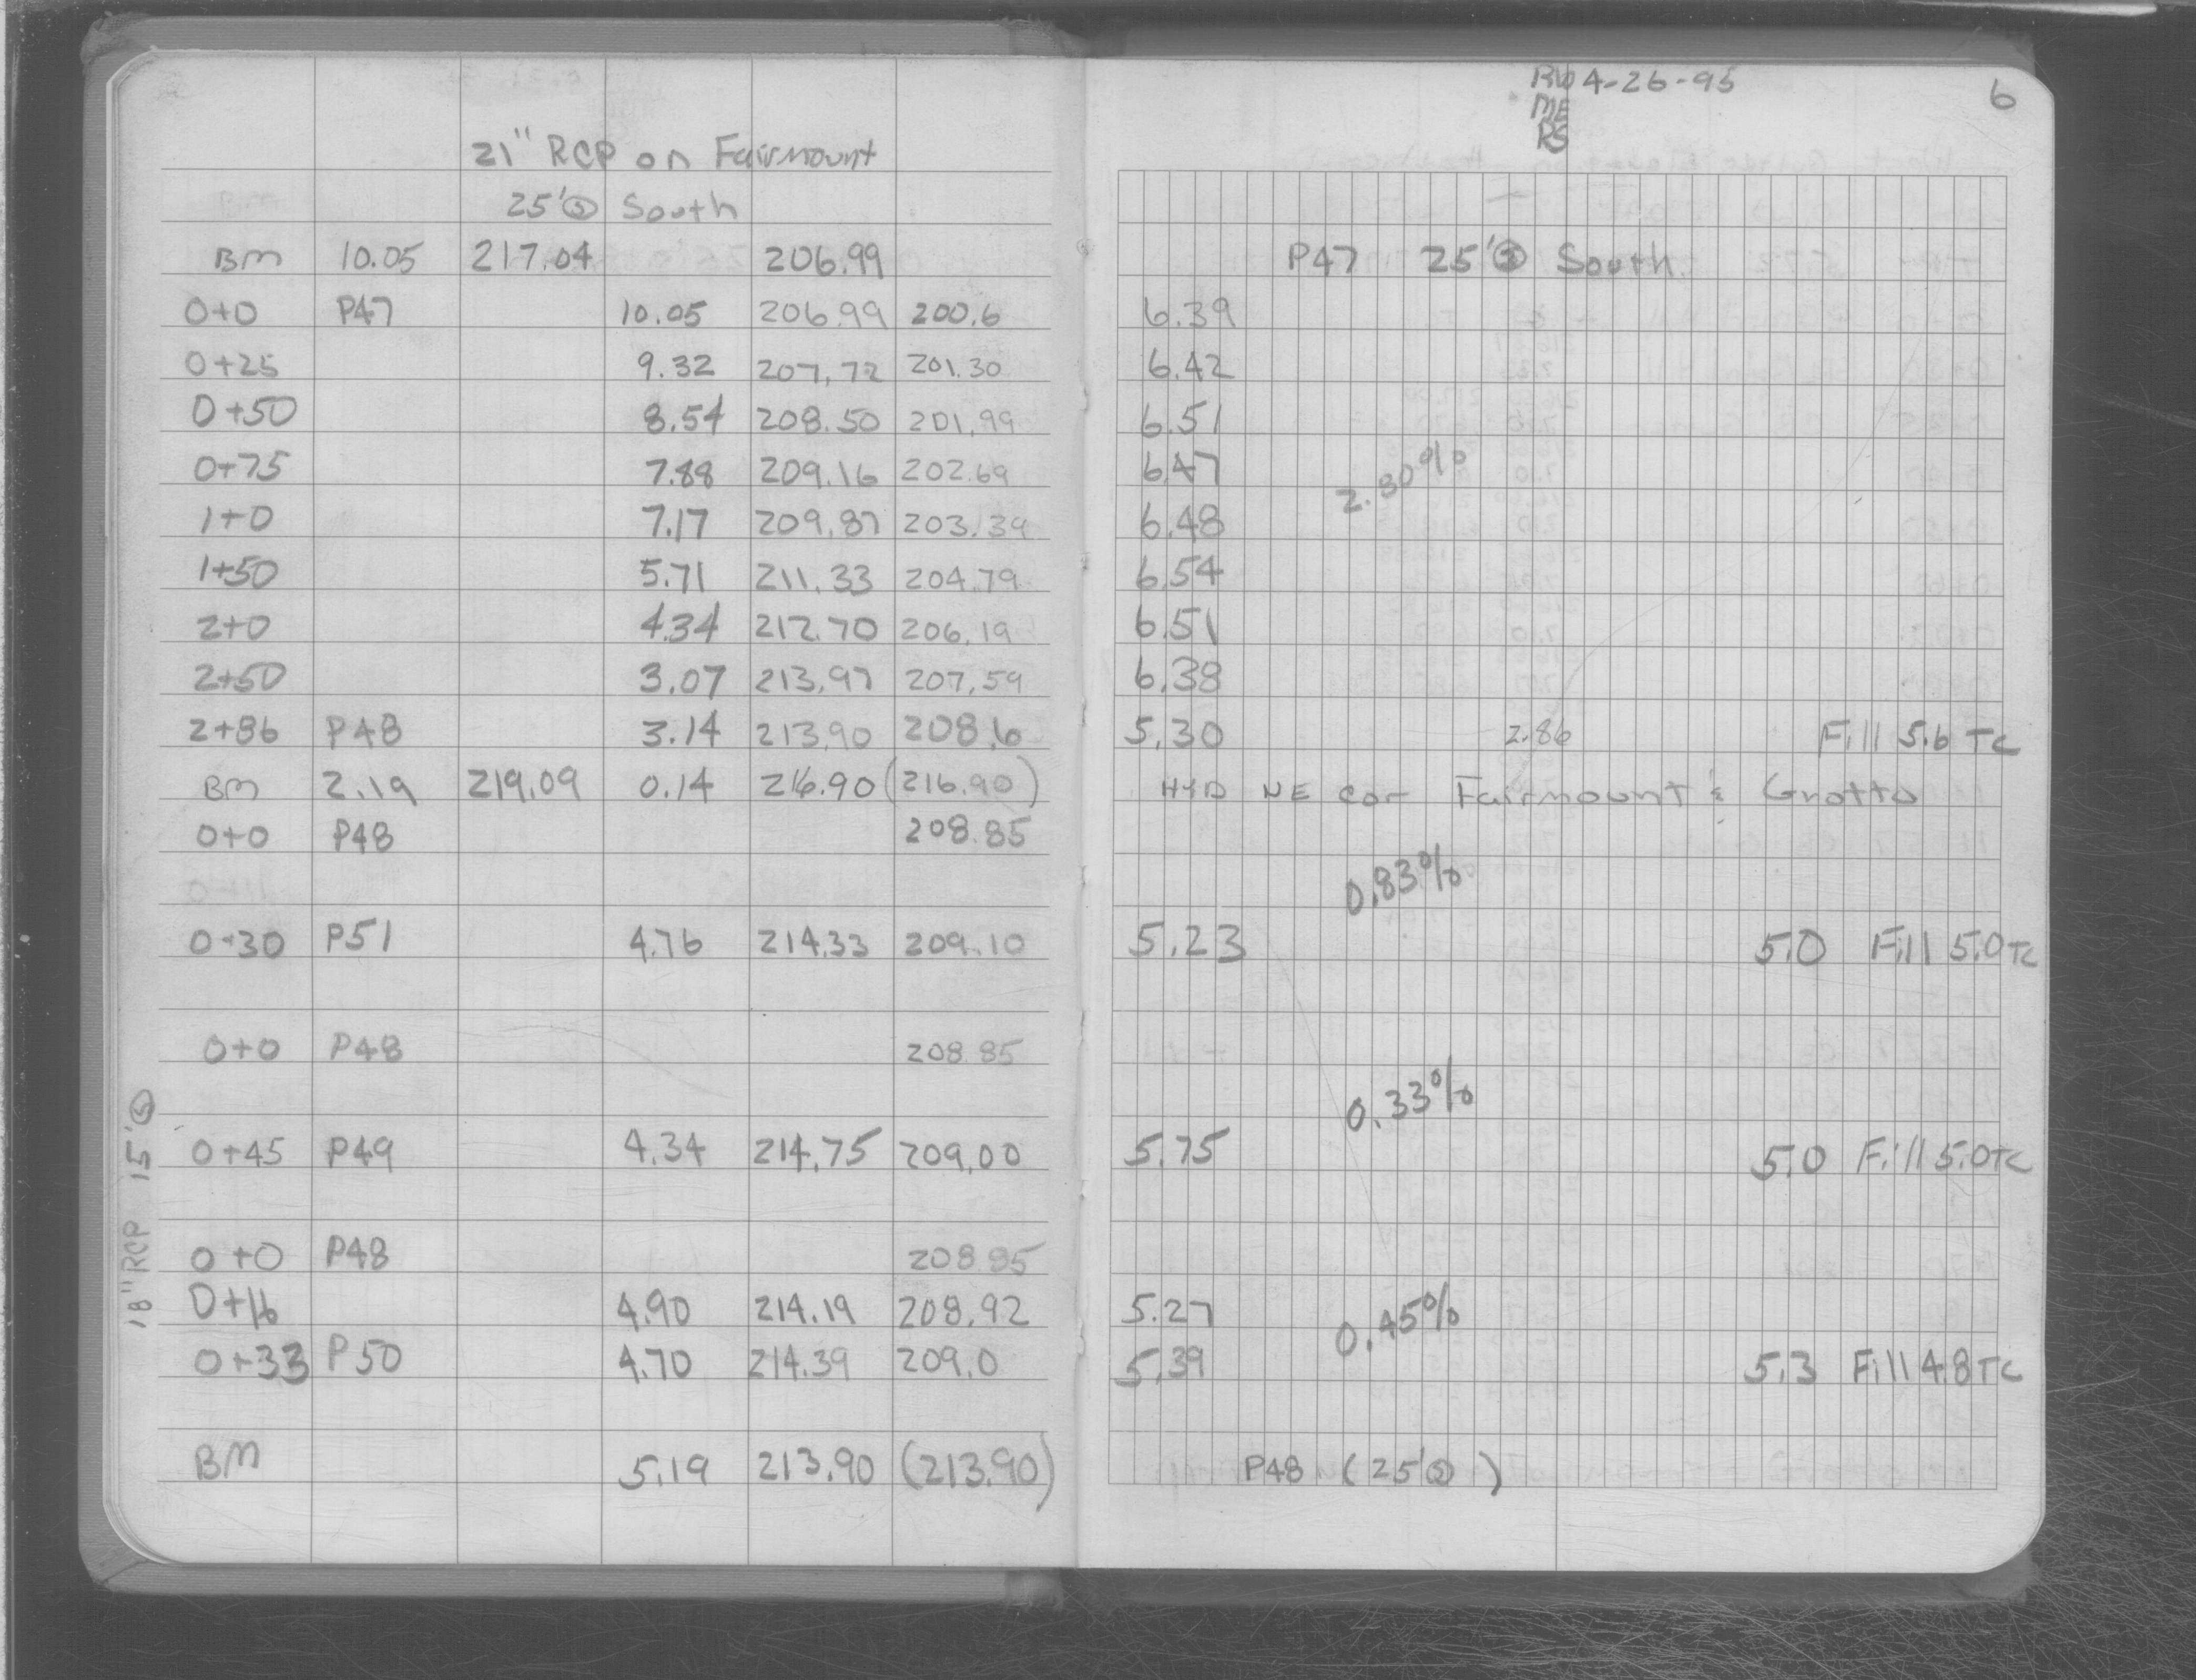 21" RCP on Fairmount
25' Ⓢ South
BM 10.05 217.04 206.99
0+0 P47 10.05 206.99 200.6
0+25 9.32 207.72 201.30
0+50 8.54 208.50 201.99
0+75 7.88 209.16 202.69
1+0 7.17 209.87 203.39
1+50 5.71 211.33 204.79
2+0 4.34 212.70 206.19
2+50 3.07 213.97 207.59
2+86 P48 3.14 213.90 208.6
BM 2.19 219.09 0.14 216.90 (216.90)
0+0 P48 208.85
0+30 P51 4.76 214.33 209.10
0+0 P48 208.85
0+45 P49 4.34 214.75 209.00
0+0 P48 208.85
0+16 4.90 214.19 208.92
0+33 P50 4.70 214.39 209.0
BM 5.19 213.90 (213.90)
18" RCP 15' Ⓢ
RW 4-26-95
ME
RS
6
P47 25' Ⓢ South
6.39
6.42
6.51
6.47
2.80%
6.48
6.54
6.51
6.38
5.30 2.86 Fill 5.6 TC
HYD NE cor Fairmount & Grotto
0.83%
5.23 5.0 Fill 5.0 TC
0.33%
5.75 5.0 Fill 5.0 TC
5.27
0.45%
5.39 5.3 Fill 4.8 TC
P48 (25' Ⓢ)